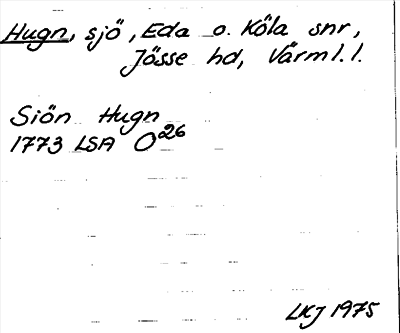 Hugn, sjö, Eda o. Köla snr,
Jösse hd, Värml. l.
Siön Hugn
1773 LSA O26
LKJ 1975